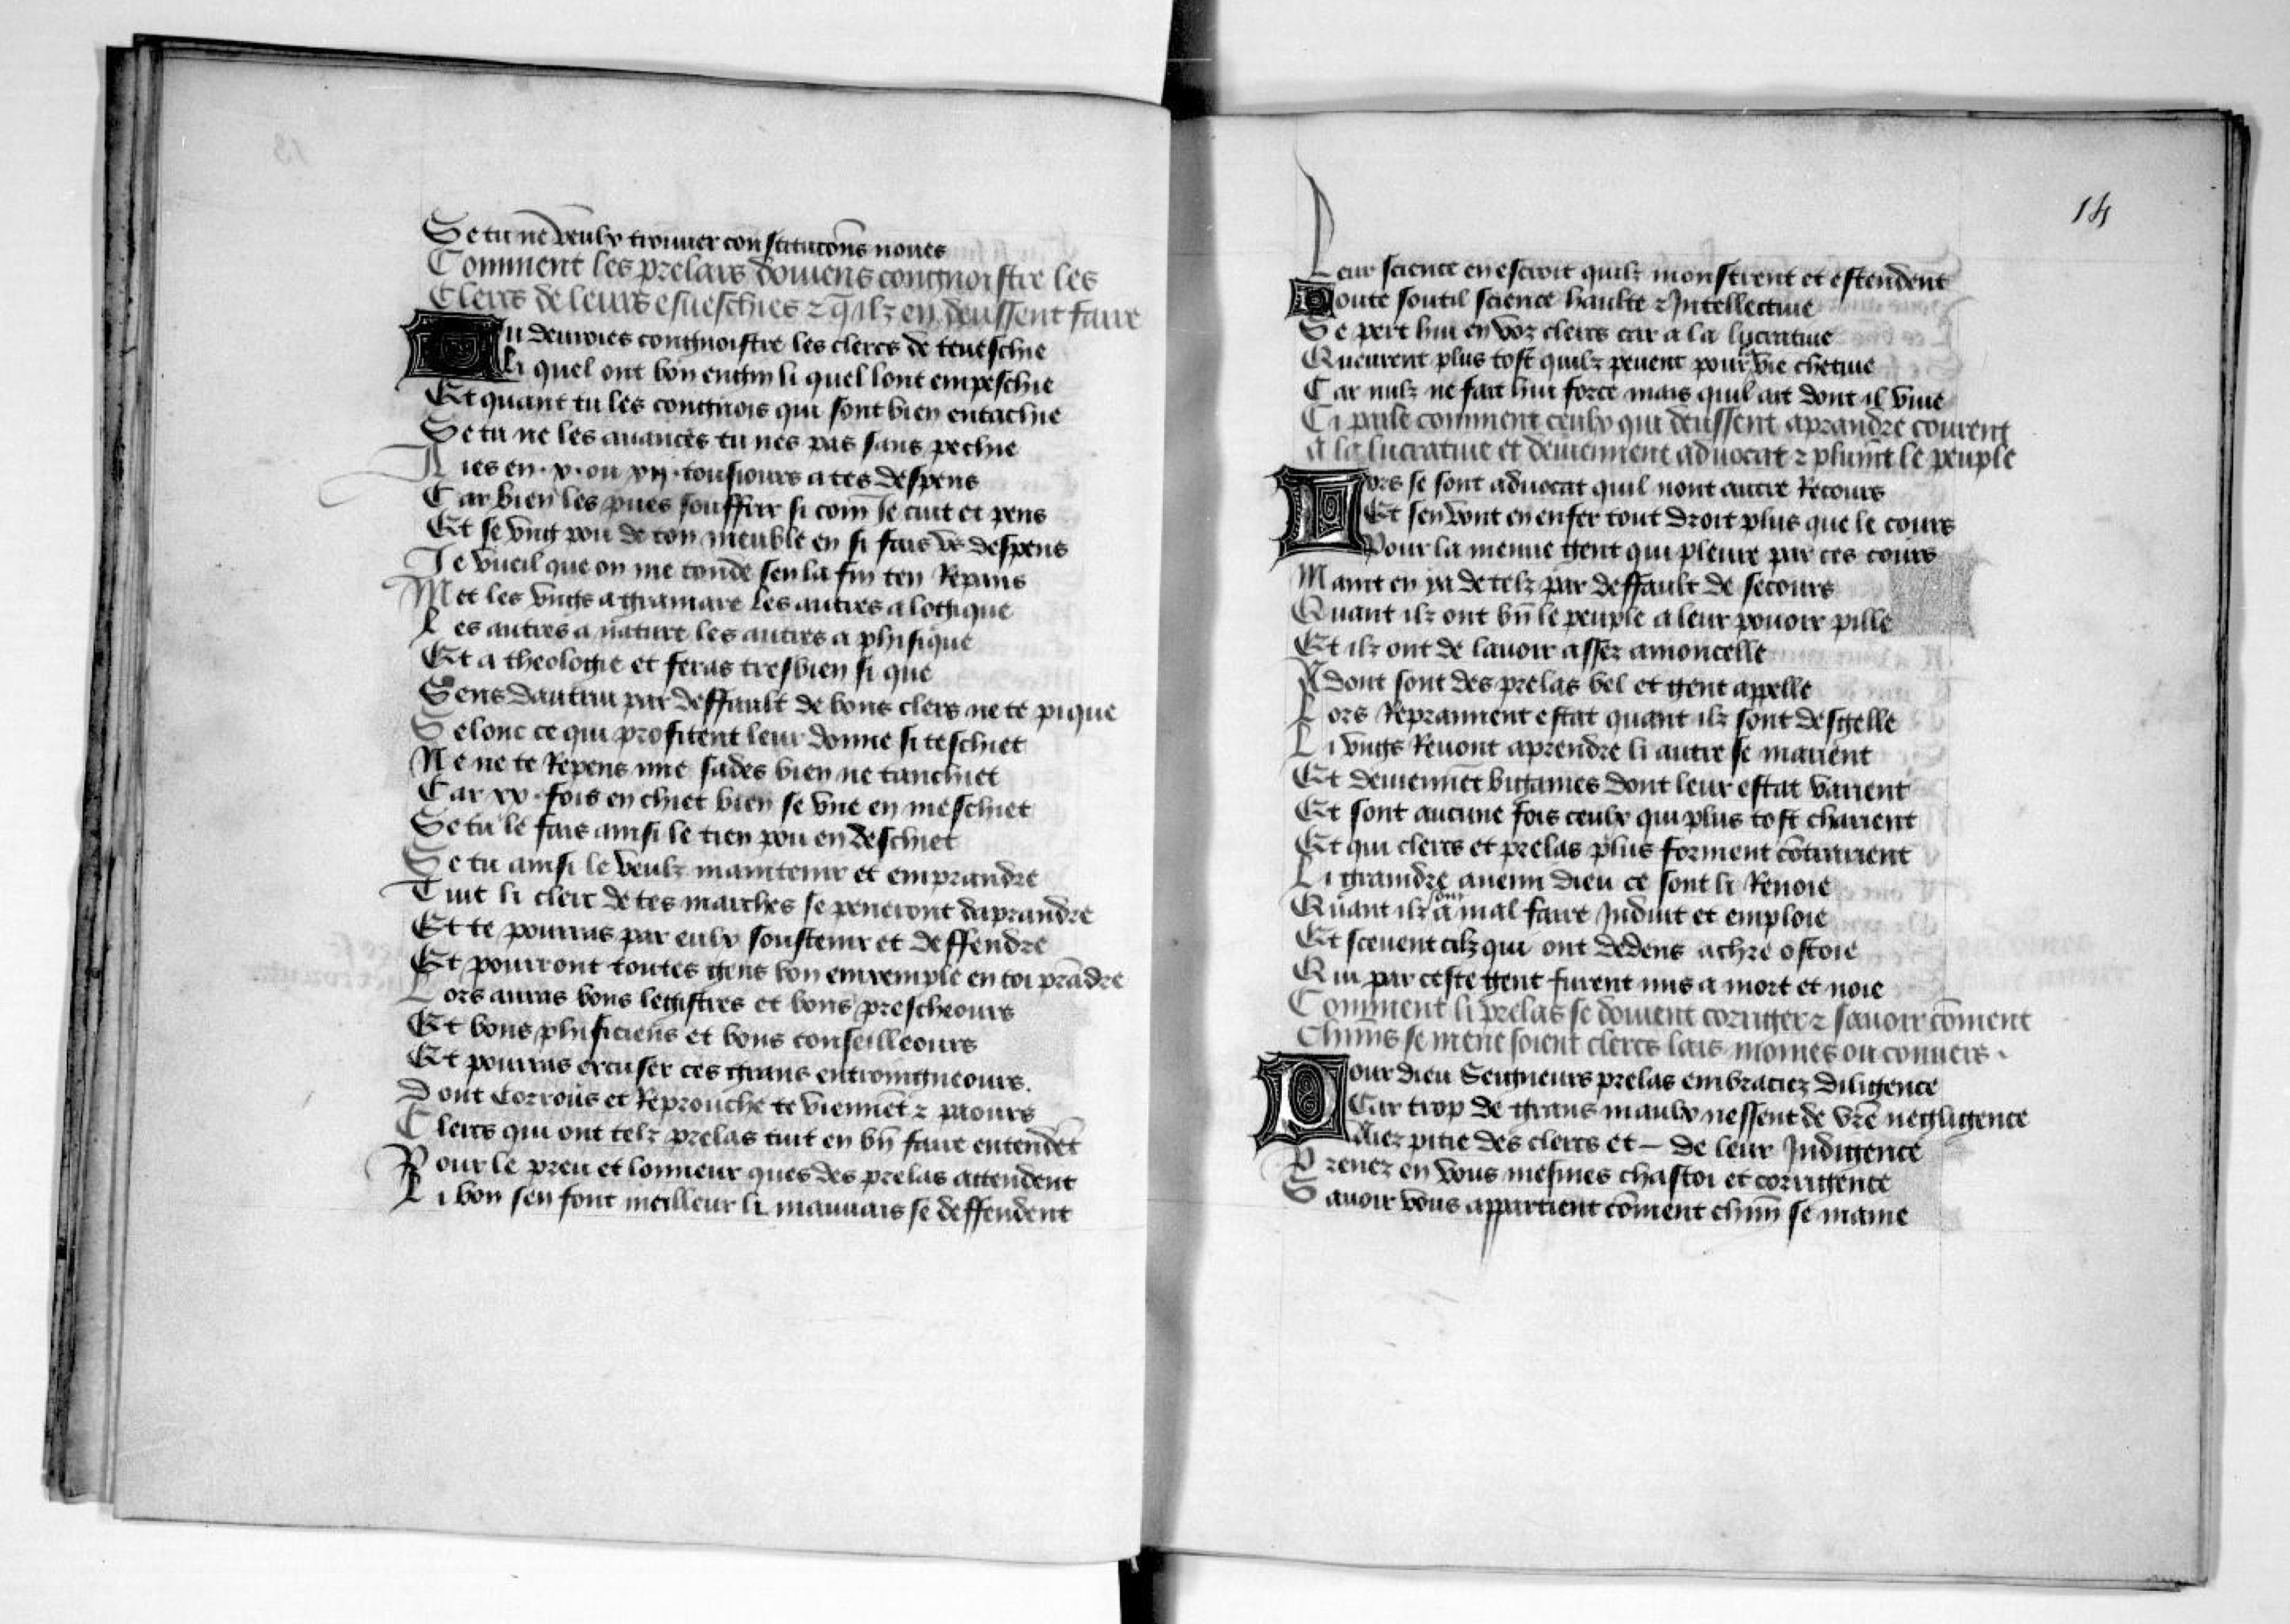 Se tu ne veulx trouuer constitucōns noues
Comment les prelaus douuens congnoistre les
Clercs de leurs esueschies ⁊ q̄ ilz en deussent faire
Tu deuroies congnoistre les clercs de teueschie
Li quel ont bon engin li quel lont empeschie
Et quant tu les congnois qui sont bien entachie
Se tu ne les auances tu nes pas sans pechie
Aies en .x. ou xij. tousiours a tes despens
Car bien les pues souffrir si com̄ Je cuit et pens
Et se vng pou de ton meuble en si fais vs despens
Je vueil que on me tonde sen la fin ten Repens
Met les vngs a gramare les autres a logique
Les autres a nature les autres a phisique
Et a theologie et feras tresbien si que
Sens dautrui par deffault de bons clers ne te pique
Selonc ce qui profitent leur donne si teschiet
Ne ne te Repens mie sades bien ne tanchiet
Car xx. fois en chiet bien se vne en meschiet
Se tu le fais ainsi le tien pou en deschiet
Se tu ainsi le veulz maintenir et emprandre
Tuit li clerc de tes marches se peneront daprandre
Et te pourras par eulx soustenir et deffendre
Et pourront toutes gens bon emxemple en toi prādre
Lors auras bons legistres et bons prescheours
Et bons phisiciens et bons conseilleours
Et pourras excuser ces grans entroingneours.
Dont Corrous et Reprouche te viennēt ⁊ paours
Clercs qui ont telz prelas tuit en bn̄ faire entendēt
Pour le preu et lonneur ques des prelas attendent
Li bon sen font meilleur li mauuais se deffendent
14
Leur science en escroit quilz monstrent et estendent
Toute soutil science haulte ⁊ Intellectiue
Se pert hui en voz clercs car a la lucratiue
Queurent plus tost quilz peuent pour vie chetiue
Car nulz ne fait hui force mais quil ait dont il viue
Ci parle comment ceulx qui deussent aprandre courent
a la lucratiue et deuiennent aduocat ⁊ plumt le peuple
Lors se sont aduocat quil nont autre Recours
Et sen vont en enfer tout droit plus que le cours
Pour la menue gent qui pleure par ces cours
Maint en ya de telz par deffault de secours
Quant ilz ont bn̄ le peuple a leur pouoir pille
Et ilz ont de lauoir assez amoncelle
Adont sont des prelas bel et gent appelle
Lors Reprannent estat quant ilz sont desgelle
Li vngs Reuont aprendre li autre se marient
Et deuiennēt bigames dont leur estat varient
Et sont aucune fois ceulx qui plus tost charient
Et qui clercs et prelas plus forment cōtrarient
Li graindre anemi dieu ce sont li Renoie
Quant ilz sont a mal faire Induit et emploie
Et sceuent cilz qui ont dedens achre ostoie
Qui par ceste gent furent mis a mort et noie
Comment li prelas se doiuent corriger ⁊ sauoir cōment
Chūns se mene soient clercs lais moines ou conuers .
Pour dieu Seigneurs prelas embraciez diligence
Car trop de grans maulx nessent de vrē negligence
Aiez pitie des clercs et – de leur Indigence
Prenez en vous mesmes chastoi et corrigence
Sauoir vous appartient cōment chūn se maine